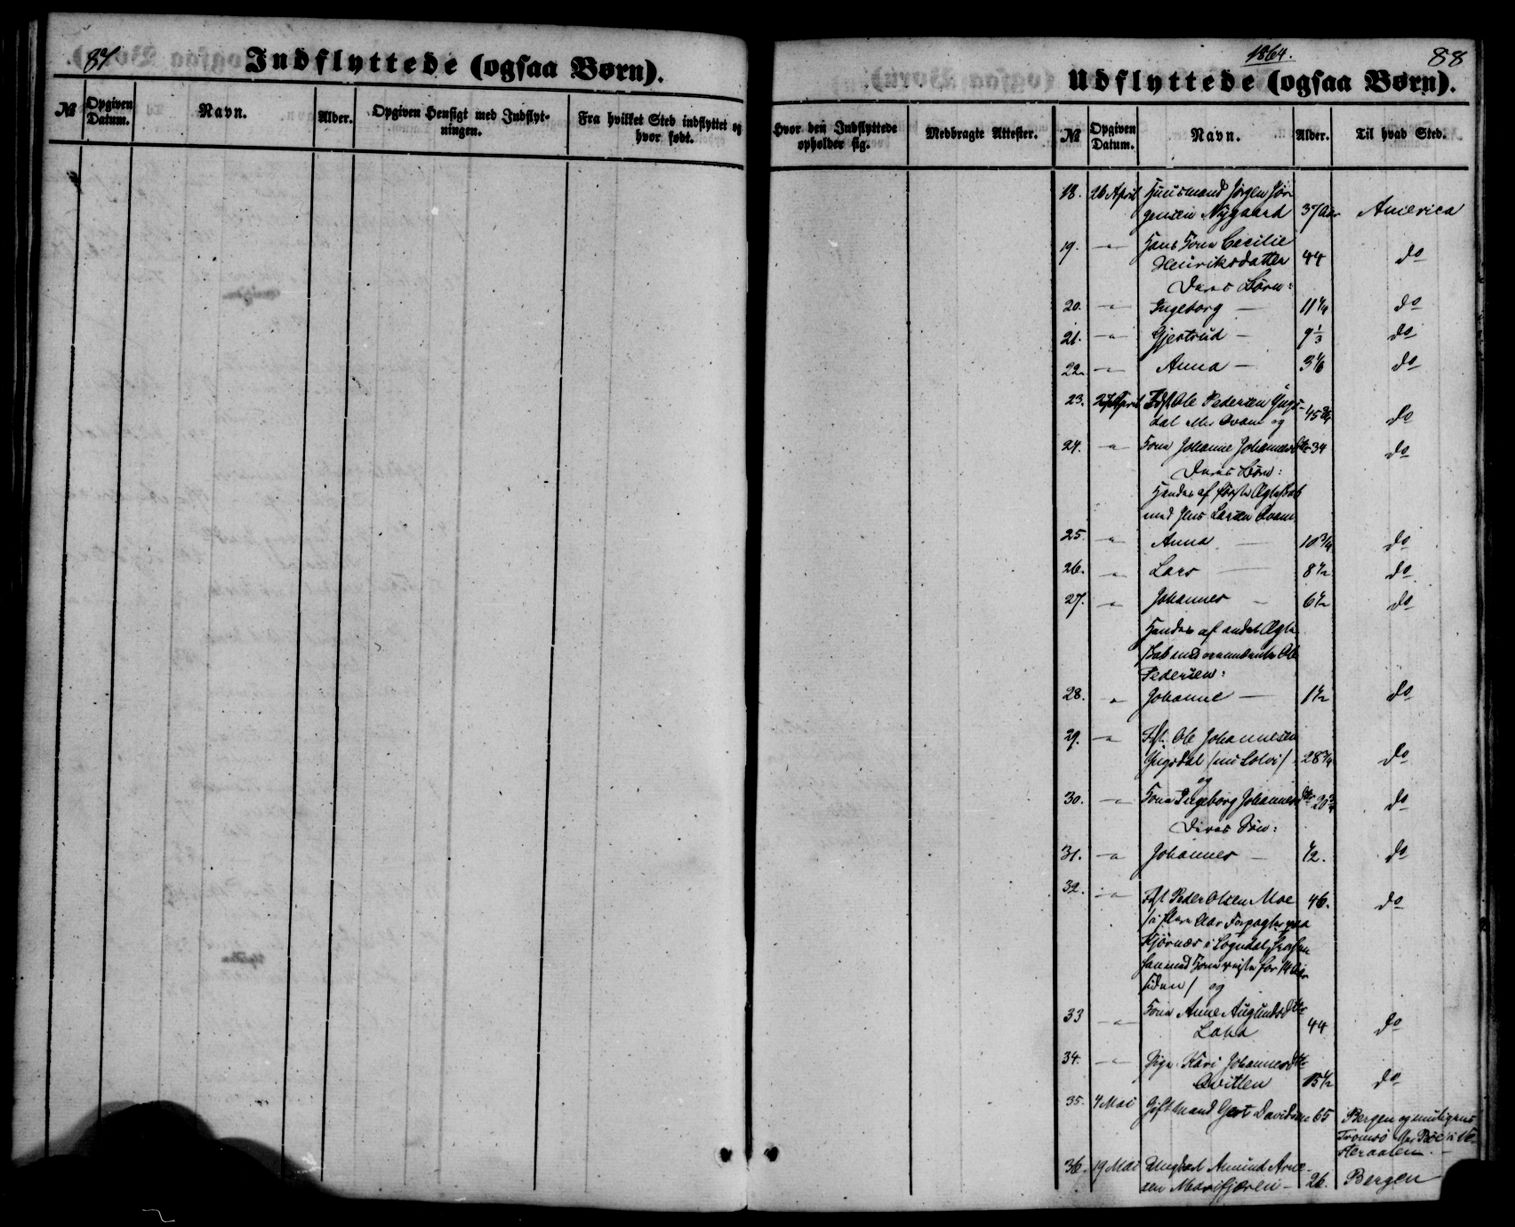 87.
Indflyttede (ogsaa Børn).
№
Opgiven Datum.
Navn.
Alder.
Opgiven Hensigt med Indflyt-
ningen.
Fra hvilket Sted indflyttet og
hvor født.
1864.
88
Udflyttede (ogsaa Børn).
Hvor den Indflyttede
opholder sig.
Medbragte Attester.
№
Opgiven Datum.
Navn.
Alder.
Til hvad Sted.
18. 26 April Huusmand Jørgen Jør-
gensen Nygaard 37 Aar America
19. -"- Hans Kone Cecilie
Henriksdatter 44 do
Deres Børn:
20. -"- Ingeborg — 11 1/4 do
21. -"- Gjertrud — 9 1/3 do
22. -"- Anna — 3 1/6 do
23. 27 April Ole Pedersen
eller Qvam og 45 3/4 do
24. -"- Kone Johanne Johannesdtr 34 do
Deres Børn:
Hendes af første Ægteskab
med Jens Larsen Qvam
25. -"- Anna — 10 3/4 do
26. -"- Lars — 8 1/2 do
27. -"- Johannes — 6 1/2 do
Hendes af andet Ægte-
skab med ovennævnte Ole
Pedersen:
28. " Johanne — 1 1/2 do
29. -"- Ole Johannesen
28 3/4 do
og
30. -"- Kone Ingeborg Johannesdtr 20 3/4 do
Deres Søn:
31. -"- Johannes — 1/2. do
32. -"- Peder Olsen Moe 46. do
/i flere Aar Forpagter paa
i Sogndal,
han med Kone reiste for 14 Aar
siden/ og
33 -"- Kone Anne
44 do
34. -"- Pige Kari Johannesdtr
15 1/2 do
35. 4 Mai Gift Mand Gert Davidsen 65 Bergen og muligens
Tromsø
36. 19 Mai Ungkarl Amund Arne-
sen Marifjæren — 26. Bergen